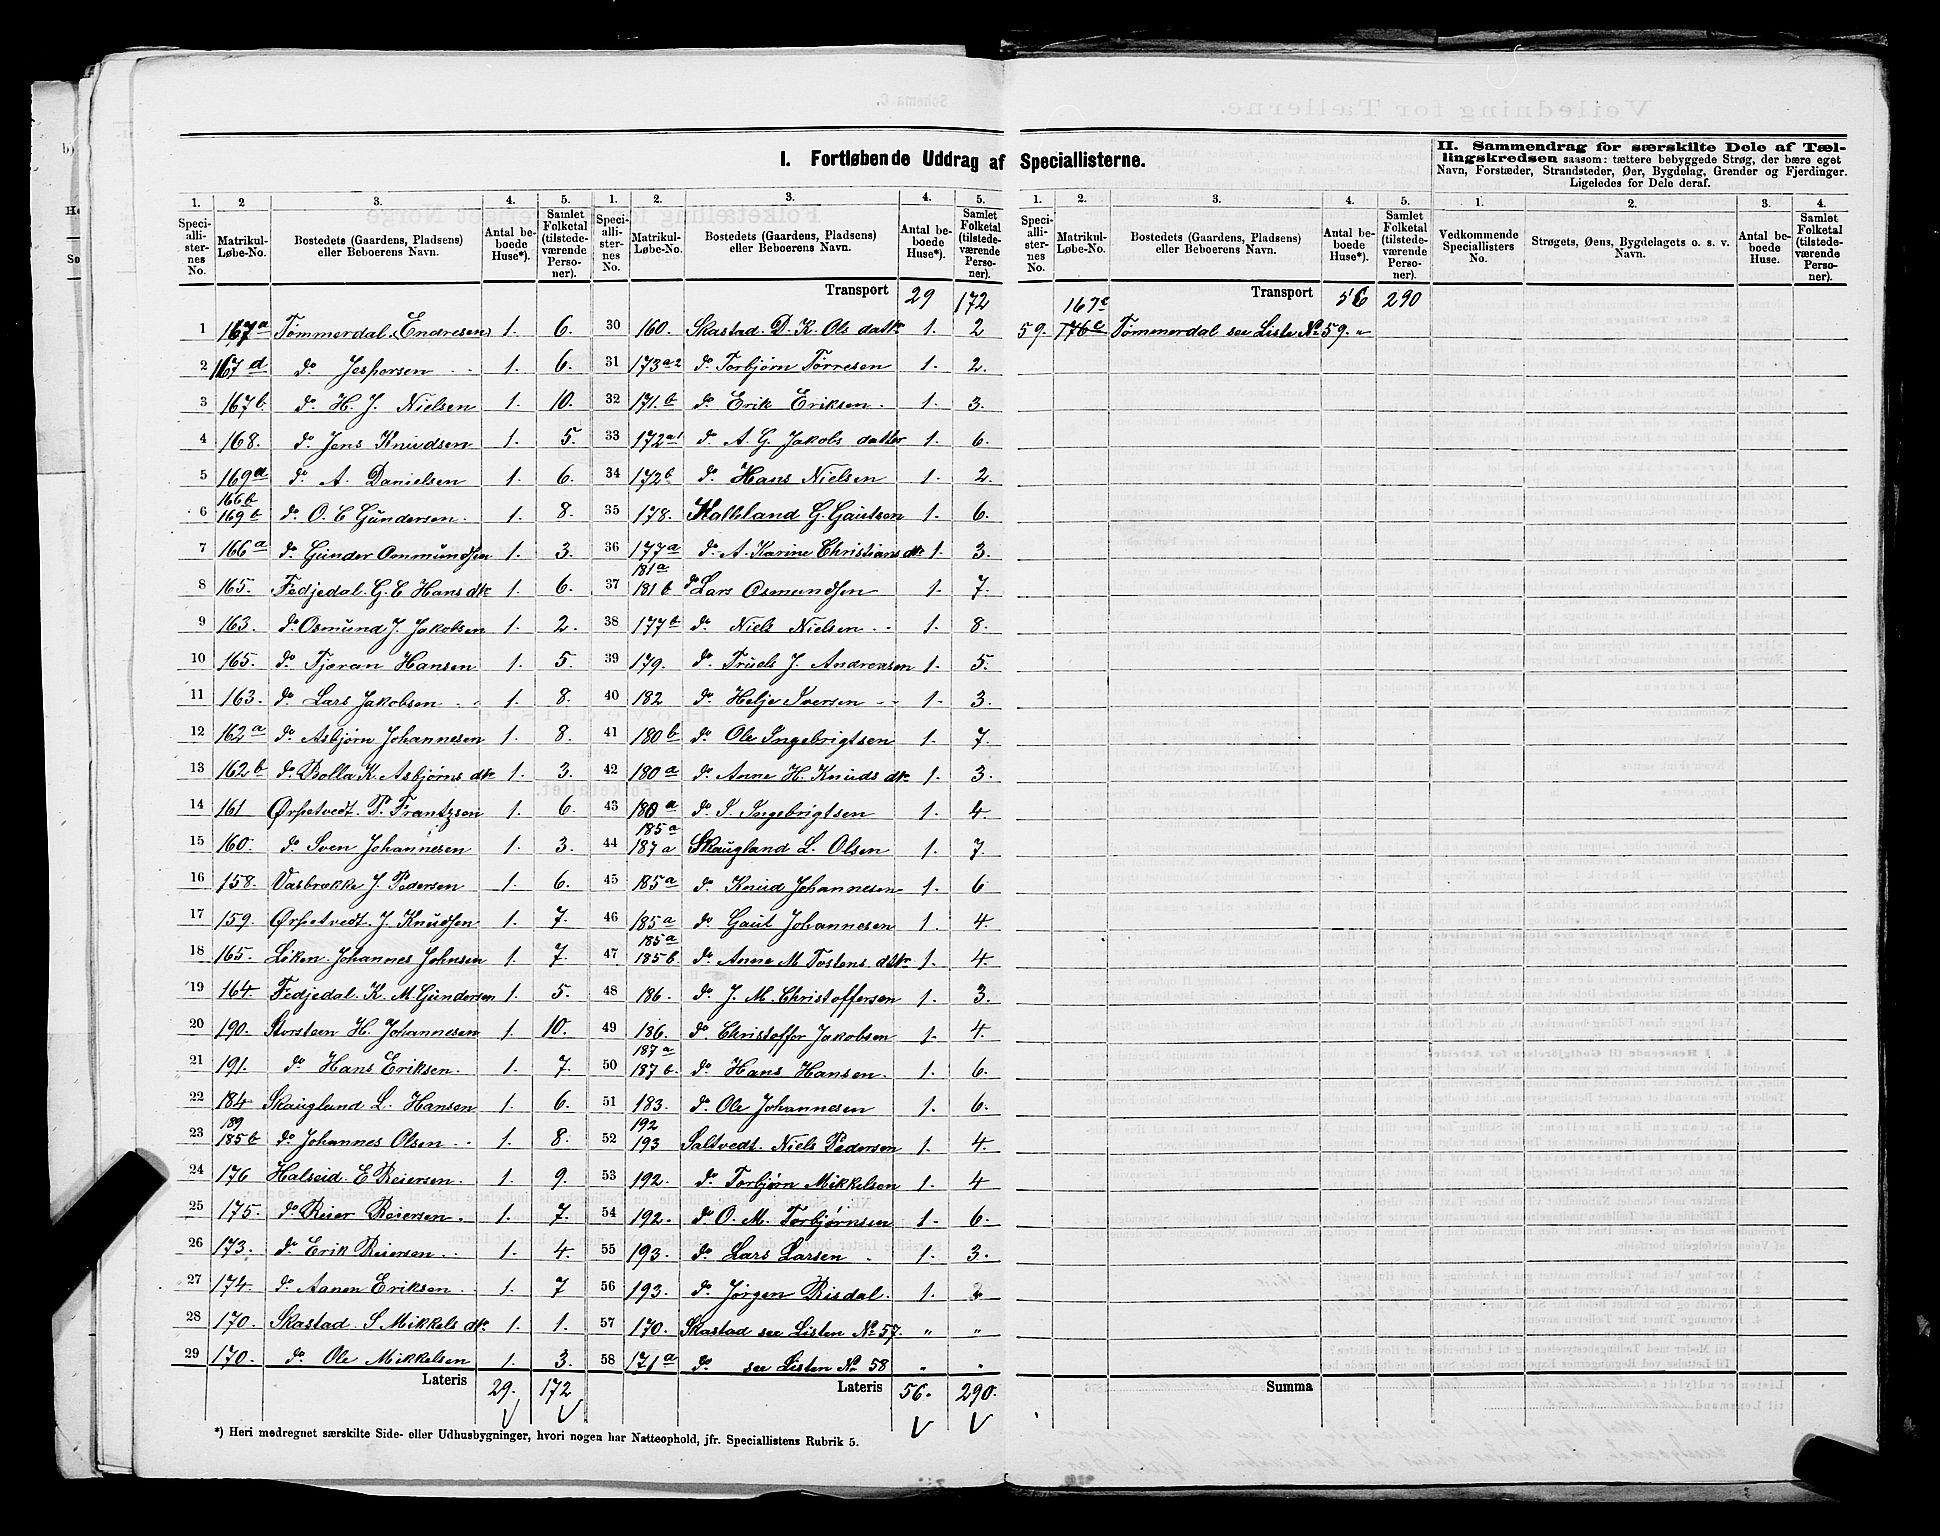 I. Fortløbende Uddrag af Speciallisterne.
II. Sammendrag for særskilte Dele af Tæl-
lingskredsen saasom: tættere bebyggede Strøg, der bære eget
Navn, Forstæder, Strandsteder, Øer, Bygdelag, Grender og Fjerdinger.
Ligeledes for Dele deraf.
1. 2 3. 4. 5.
Speciallisternes No. Matrikul-Løbe-No. Bostedets (Gaardens, Pladsens) eller Beboerens Navn. Antal beboede Huse*). Samlet Folketal (tilstedeværende Personer).
1 167a Tømmerdal. (Endresen) 1. 6.
2 167d do Jespersen 1. 6.
3 167b. do H. J. Nielsen 1. 10.
4 168. do Jens Knudsen 1. 5.
5 169a do A. Danielsen 1. 6.
6 166b 169b do O. C Gundersen. 1. 8.
7 166a do Gunder Ommundsen 1. 3.
8 165. Fedjedal. G. C Hans dtr 1. 6.
9 163. do Osmund J. Jakobsen 1. 2.
10 165. do Tjøran Hansen 1. 5.
11 163. do Lars Jakobsen 1. 8.
12 162a do Asbjørn Johannesen 1. 8.
13 162b do Bolla K. Asbjørns dtr 1. 3.
14 161 Ørpetvedt. P. Frantzsen 1. 6.
15 160. do Sven Johannesen 1. 3.
16 158. Vasbrække J. Pedersen 1. 6.
17 159. Ørpetvedt. J. Knudsen 1. 7.
18 165. Løken. Johannes Johnsen 1. 7.
19 164 Fedjedal. K. M. Gundersen 1. 5.
20 190. Storsteen H. Johannesen 1. 10.
21 191. do Hans Eriksen. 1. 7.
22 184 Skaugland L. Hansen 1. 6.
23 189 185b do Johannes Olsen 1. 8.
24 176 Halseid. E Reiersen. 1. 9.
25 175. do Reier Reiersen. 1. 7.
26 173. do Erik Reiersen 1. 4.
27 174. do Aanen Eriksen 1. 7
28 170. Skastad. S Mikkels dtr. 1. 1.
29 170. do Ole Mikkelsen 1. 3.
Lateris 29. 172
1. 2. 3. 4. 5.
Speciallisternes No. Matrikul-Løbe-No. Bostedets (Gaardens, Pladsens) eller Beboerens Navn. Antal beboede Huse*). Samlet Folketal (tilstedeværende Personer).
Transport 29 172
30 160. Skastad. D. K. Ols datter 1. 2
31 173a2 do Torbjørn Tørresen 1. 2.
32 171.b do Erik Eriksen. 1. 3.
33 172a1 do A. G. Jakobs datter 1. 6.
34 172b do Hans Nielsen 1. 2.
35 178. Kalleland G. Gautsen 1. 6.
36 177a do A. Karine Christians dtr. 1. 3.
37 181a 181b do Lars Osmundsen 1. 7.
38 177b do Niels Nielsen 1. 8.
39 179. do Truels J. Andreasen 1. 5.
40 182 do Helje Iversen 1. 3.
41 180b do Ole Ingebrigtsen 1. 7.
42 180a do Anne H. Knuds dtr 1. 3.
43 180a do S. Ingebrigtsen 1. 4
44 185a 187a Skaugland L. Olsen 1. 7.
45 185a do Knud Johannesen 1. 6
46 185a do Gaut Johannesen 1. 4.
47 185a 185b. do Anne M. Tostens. dttr 1. 4.
48 186. do J. M. Christoffersen 1. 3.
49 186. do Christoffer Jakobsen 1. 4.
50 187a 187b. do Hans Hansen. 1. 6.
51 183. do Ole Johannesen 1. 6.
52 192 193 Saltvedt. Niels Pedersen 1. 4.
53 192. do Torbjørn Mikkelsen 1. 4
54 192. do O. M. Torbjørnsen 1. 6.
55 193. do Lars Larsen 1. 3.
56 193. do Jørgen Risdal. 1. 2
57 170. Skastad see Listen No 57. " "
58 171a do see Listen No 58 " "
Lateris 56. 290.
*) Heri medregnet særskilte Side- eller Udhusbygninger, hvori nogen har Natteophold, jfr. Speciallistens Rubrik 5.
1. 2. 3. 4. 5.
Speciallisternes No. Matrikul-Løbe-No. Bostedets (Gaardens, Pladsens) eller Beboerens Navn. Antal beboede Huse*). Samlet Folketal (tilstedeværende Personer).
Transport 56 290
59. 167e 176c Tømmerdal see Liste No 59. "
Summa
1. 2. 3. 4.
Vedkommende Speciallisters No. Strøgets, Øens, Bygdelagets o. s. v. Navn. Antal beboede Huse. Samlet Folketal (tilstedeværende Personer).